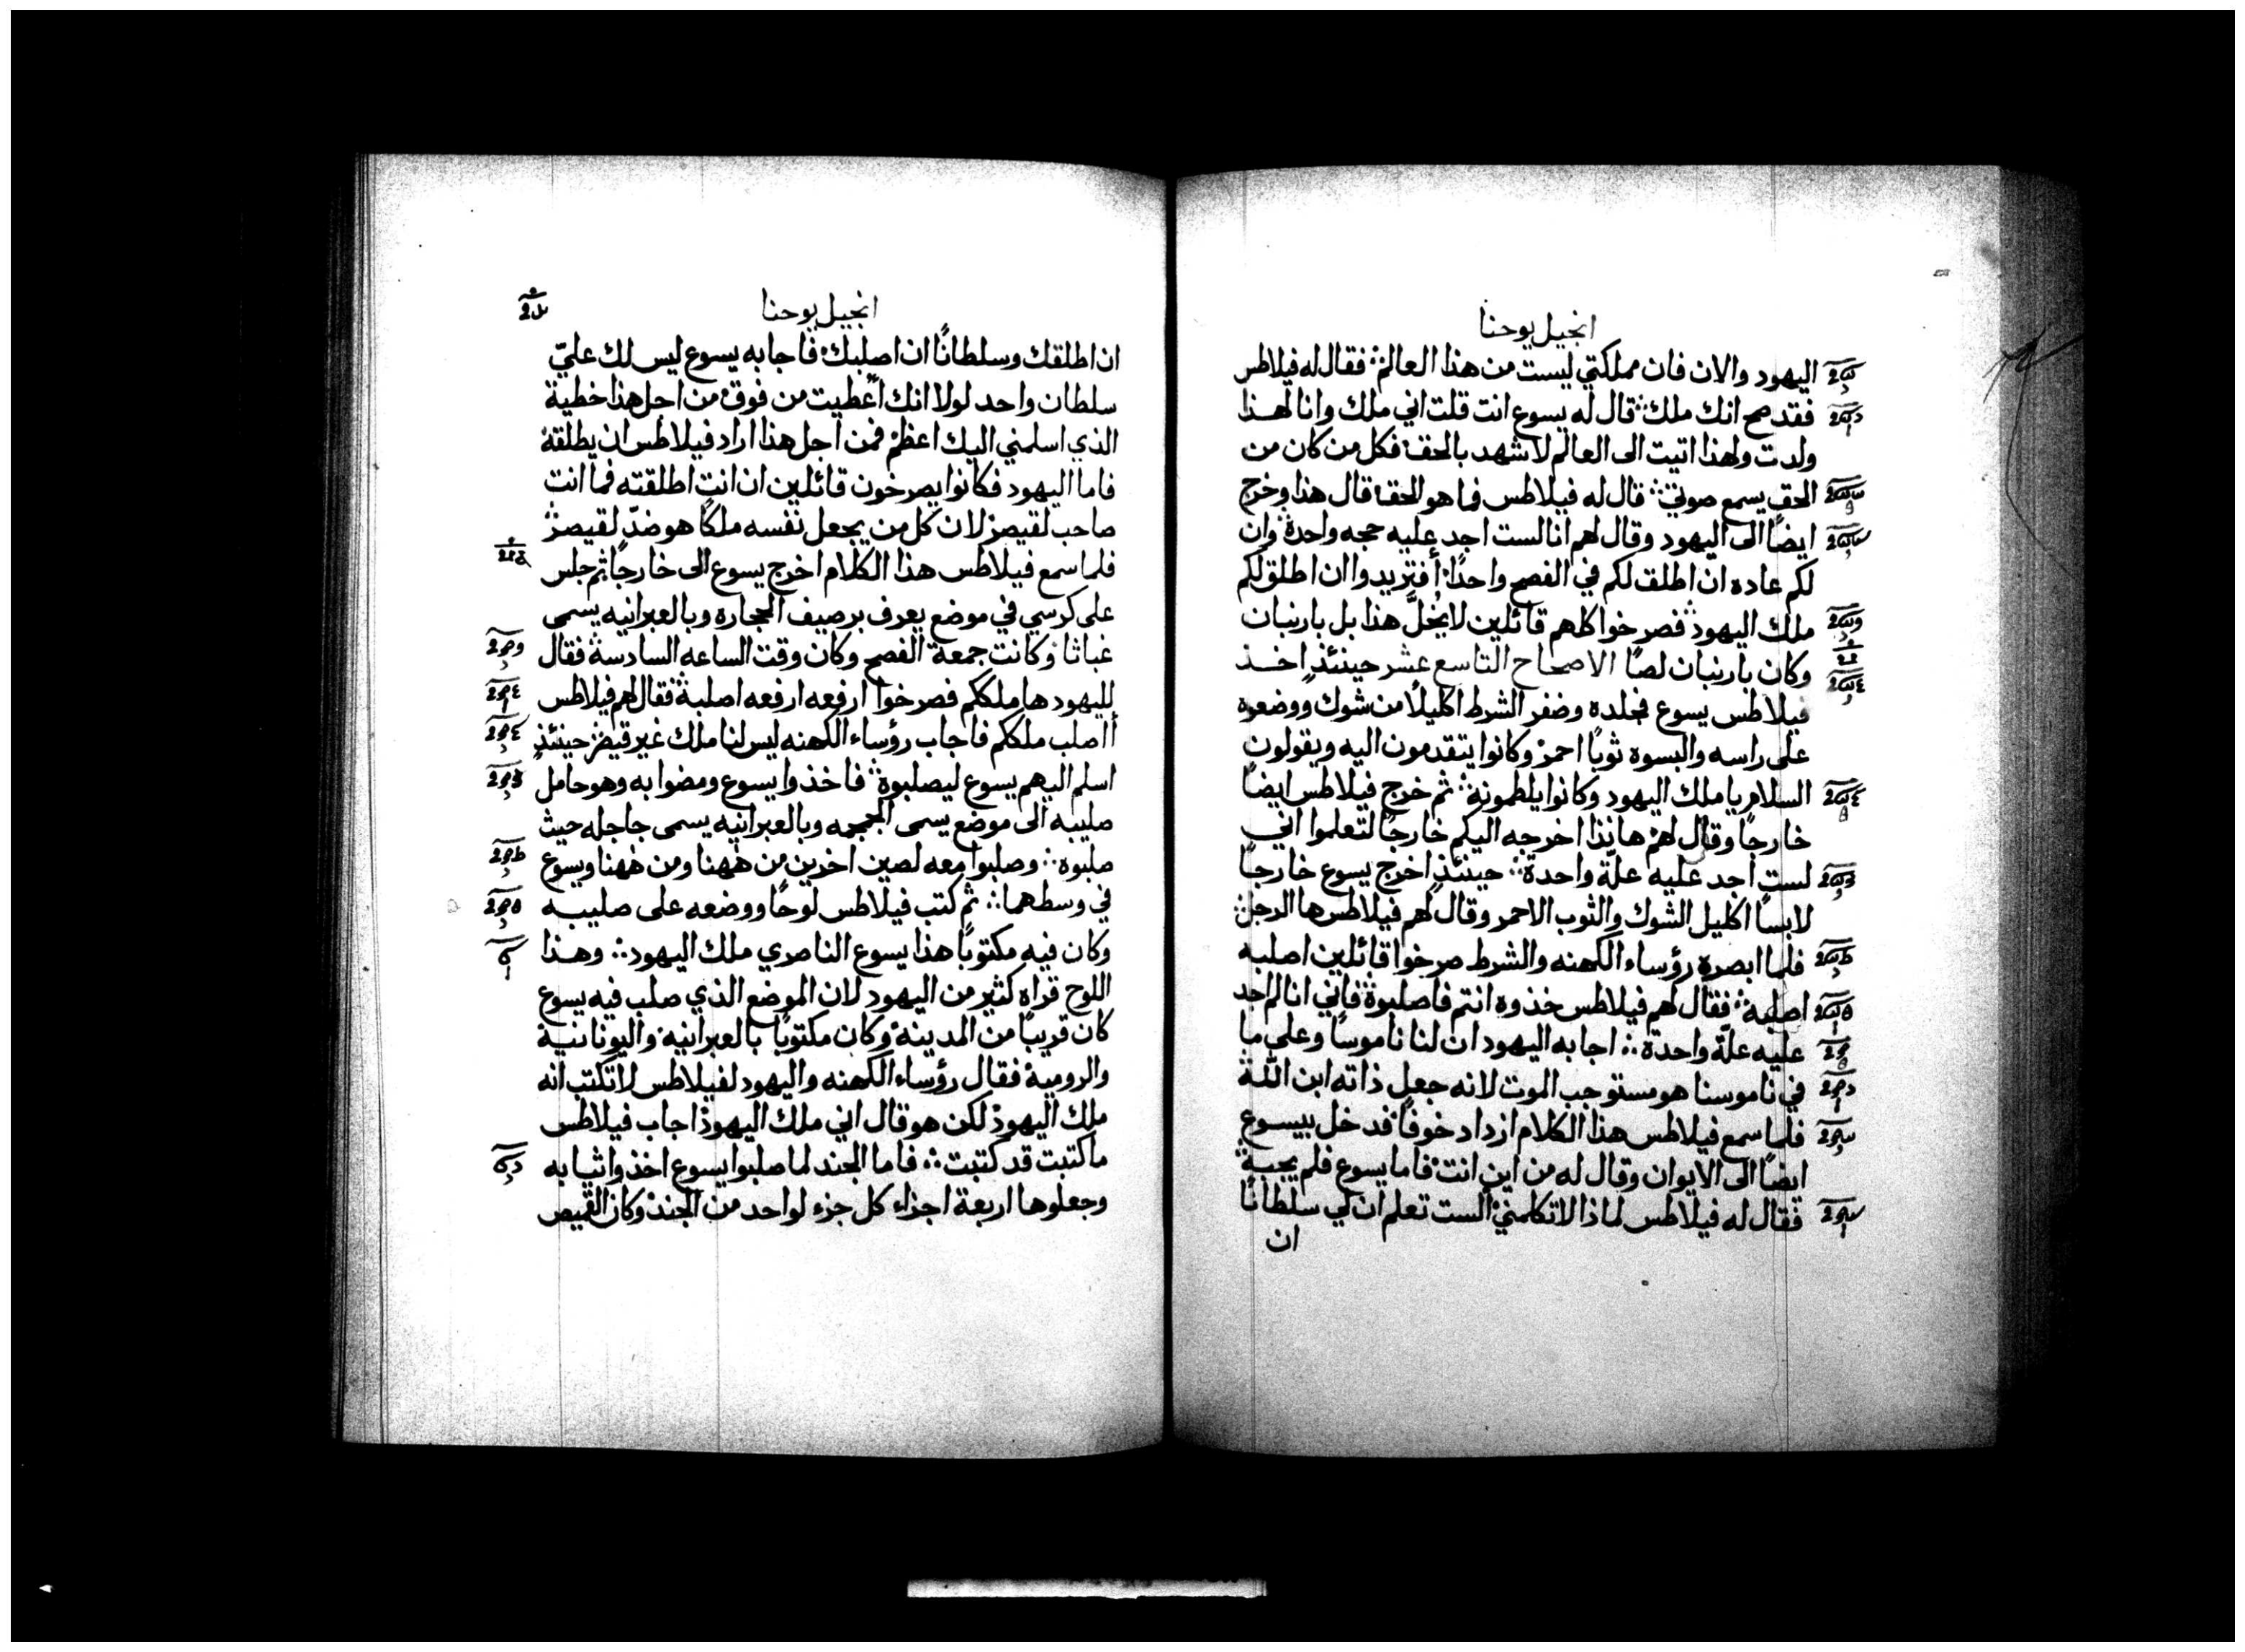 انجيل يوحنا
اليهود والان فان مملكتي ليست من هذا العالم ჻ فقال له فيلاطس
فقد صح انك ملك ჻ قال له يسوع انت قلت اني ملك وانا لهذا
ولدت ولهذا اتيت الى العالم لاشهد بالحق ჻ فكل من كان من
الحق يسمع صوتي ჻ قال له فيلاطس فما هو الحق ჻ قال هذا وخرج
ايضًا الى اليهود وقال لهم انا لست اجد عليه حجه واحدة ჻ وان
لكم عاده ان اطلق لكم في الفصح واحدًا ჻ أفتريدوا ان اطلق لكم
ملك اليهود ჻ فصرخوا كلهم قائلين لا يُخلَّ هذا بل بارنبان
وكان بارنبان لصًا الاصحاح التاسع عشر حينئذٍ اخذ
فيلاطس يسوع فجلده وضفر الشرط اكليلًا من شوك ووضعوه
على راسه والبسوه ثوبًا احمر ჻ وكانوا يتقدمون اليه ويقولون
السلام يا ملك اليهود وكانوا يلطمونه ჻ ثم خرج فيلاطس ايضًا
خارجًا وقال لهم هانذا اخرجه اليكم خارجًا لتعلموا اني
لست اجد عليه علّة واحدة ჻ حينئذٍ اخرج يسوع خارجًا
لابسًا اكليل الشوك والثوب الاحمر وقال لهم فيلاطس ها الرجل ჻
فلما ابصره رؤساء الكهنه والشرط صرخوا قائلين اصلبه
اصلبه ჻ فقال لهم فيلاطس خذوه انتم فاصلبوه ჻ فاني انا لم اجد
عليه علّة واحدة ჻ اجابه اليهود ان لنا ناموسًا وعلى ما
في ناموسنا هو مستوجب الموت لانه جعل ذاته ابن اللّه
فلما سمع فيلاطس هذا الكلام ازداد خوفًا ჻ فدخل بيسوع
ايضًا الى الايوان وقال له من اين انت ჻ فاما يسوع فلم يجبه ჻
فقال له فيلاطس لماذا لا تكلمني ჻ ألست تعلم ان لي سلطانًا
ان
انجيل يوحنا
ان اطلقك وسلطانًا ان اصلبك ჻ فاجابه يسوع ليس لك عليّ
سلطان واحد لولا انك اُعطيت من فوق ჻ من اجل هذا خطية
الذي اسلمني اليك اعظم ჻ فمن اجل هذا اراد فيلاطس ان يطلقه
فاما اليهود فكانوا يصرخون قائلين ان انت اطلقته فما انت
صاحب لقيصر ჻ لان كل من يجعل نفسه ملكًا هو ضدّ لقيصر ჻
فلما سمع فيلاطس هذا الكلام اخرج يسوع الى خارجًا ჻ ثم جلس
على كرسي في موضع يعرف برصيف الحجاره وبالعبرانيه يسمى
غباثا ჻ وكانت جمعة الفصح وكان وقت الساعه السادسة ჻ فقال
لليهود ها ملككم فصرخوا ارفعه ارفعه اصلبه ჻ فقال لهم فيلاطس
أاصلب ملككم فاجاب رؤساء الكهنه ليس لنا ملك غير قيصر ჻ حينئذٍ
اسلم اليهم يسوع ليصلبوه ჻ فاخذوا يسوع ومضوا به وهو حامل
صليبه الى موضع يسمى الجمجمه وبالعبرانيه يسمى جاجله حيث
صلبوه ჻ وصلبوا معه لصين اخرين من ههنا ومن ههنا ويسوع
في وسطهما ჻ ثم كتب فيلاطس لوحًا ووضعه على صليبه
وكان فيه مكتوبًا هذا يسوع الناصري ملك اليهود ჻ وهذا
اللوح قراه كثير من اليهود لان الموضع الذي صلب فيه يسوع
كان قريبًا من المدينة ჻ وكان مكتوبًا بالعبرانية ჻ واليونانية
والرومية ჻ فقال رؤساء الكهنه واليهود لفيلاطس لا تكتب انه
ملك اليهود ჻ لكن هو قال اني ملك اليهود ჻ اجاب فيلاطس
ما كتبت قد كتبت ჻ فاما الجند لما صلبوا يسوع اخذوا ثيابه
وجعلوها اربعة اجزاء كل جزء لواحد من الجند ჻ وكان القميص